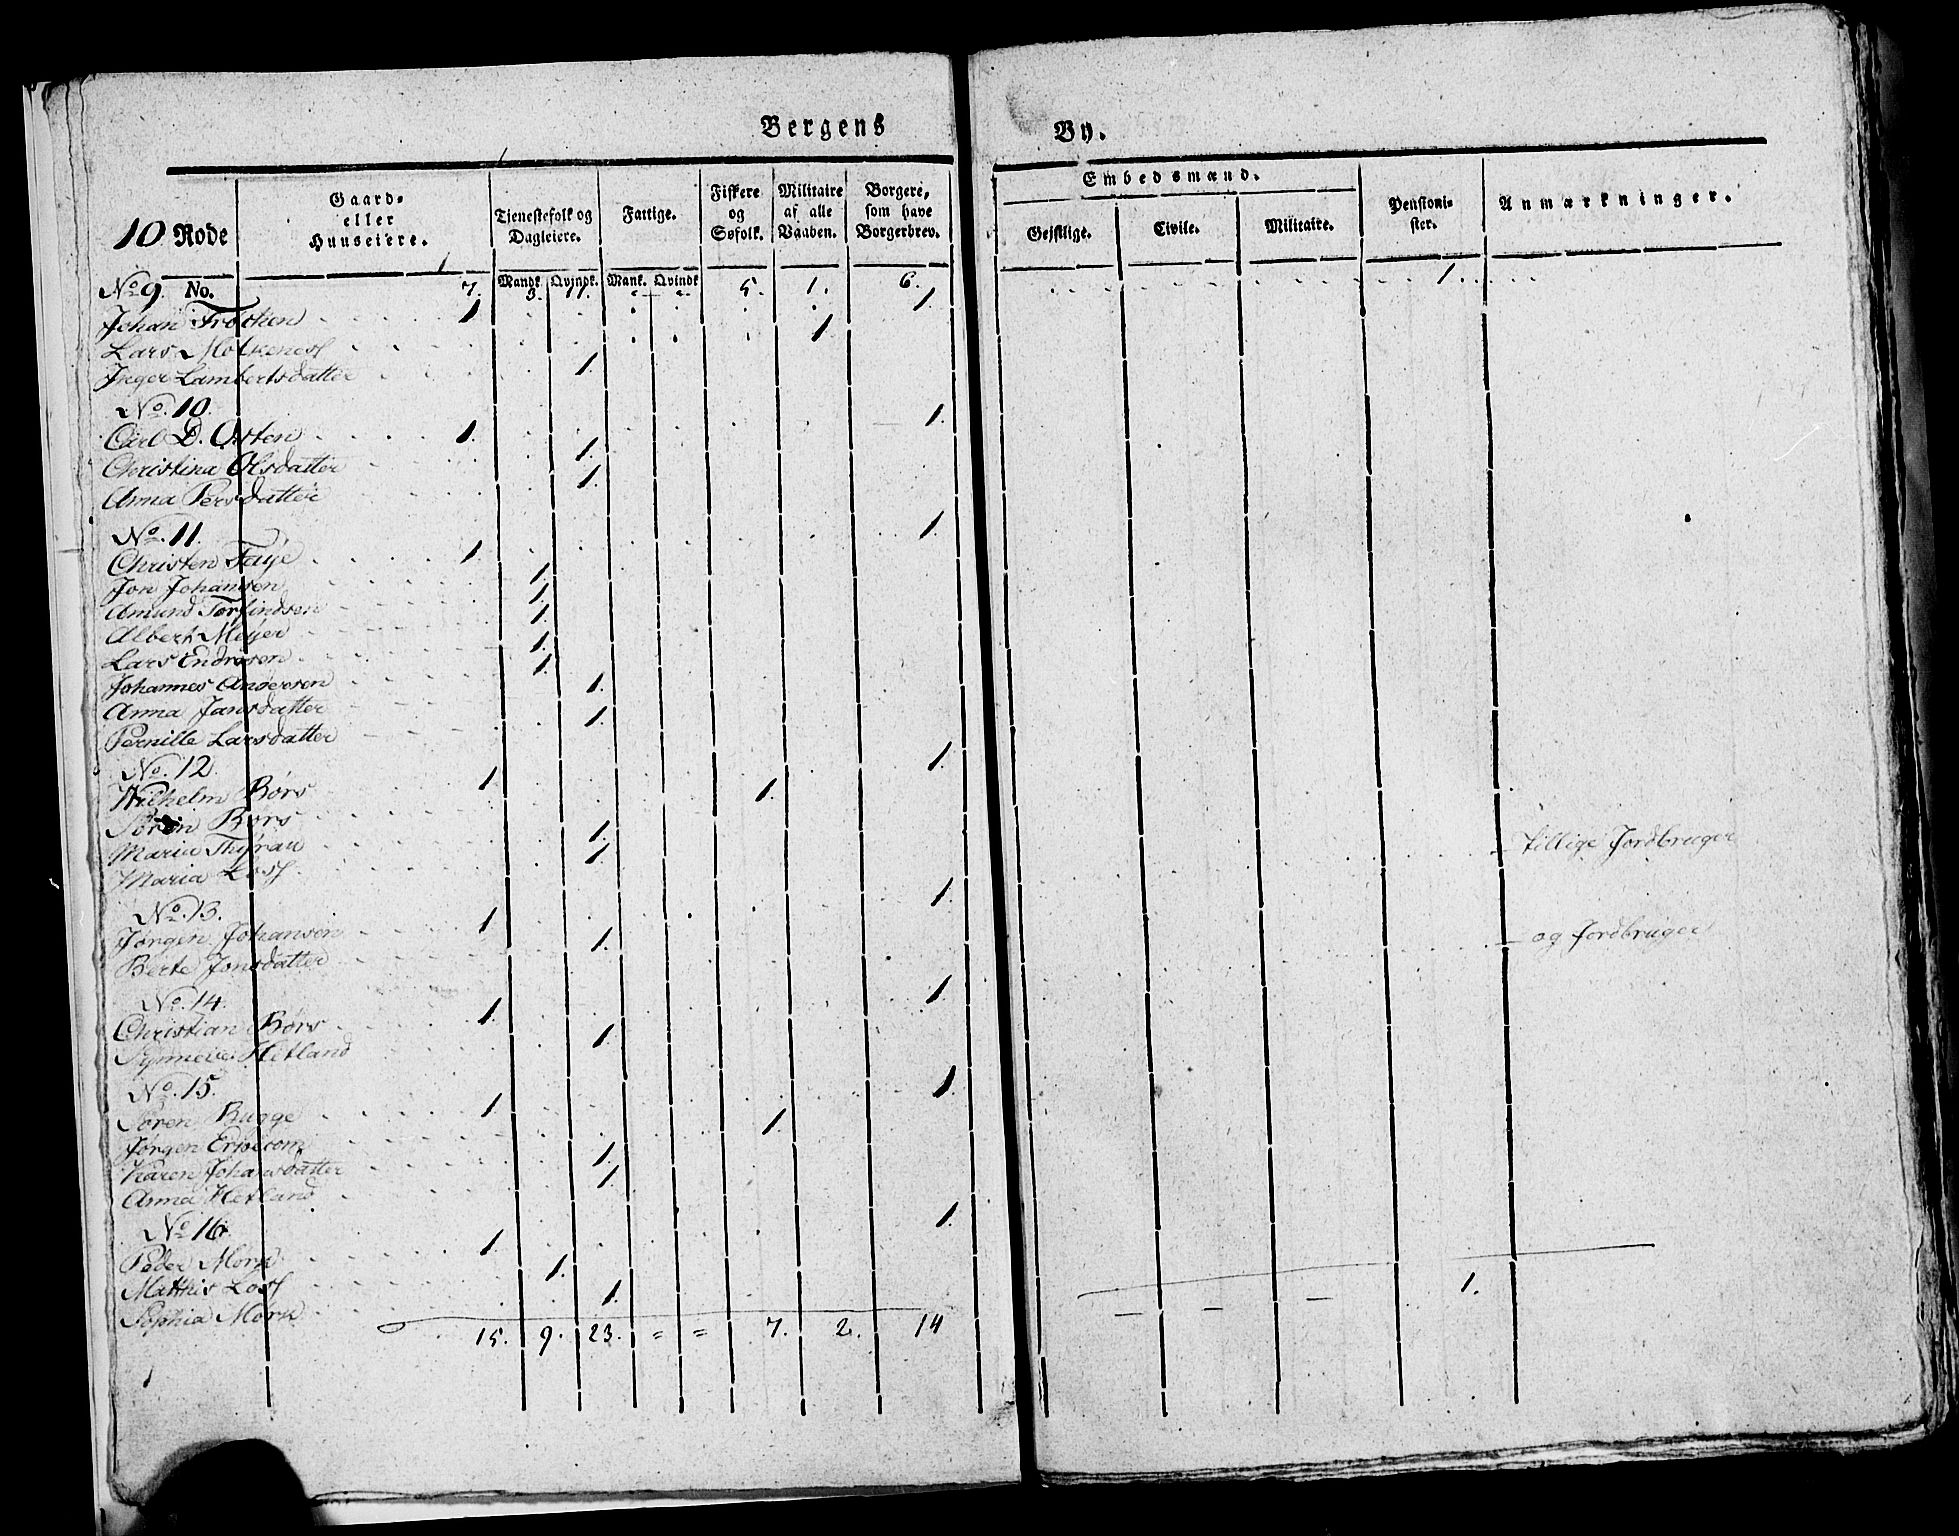 Bergens By.
10 Rode
Gaard- eller Huuseiere.
Tjenestefolk og Dagleiere.
Fattige.
Fiskere og Søfolk.
Militaire af alle Vaaben.
Borgere, som have Borgerbrev.
Embedsmænd.
Geistlige. Civile. Militaire.
Pensionister.
Anmærkninger.
Mandk. Qvindk. Mank. Qvindk.
No 9. No. 7. 3. 11. 5. 1. 6. 1.
Johan 1. 1.
Lars 1.
Inger Lambertsdatter 1.
No. 10.
Carl D. Osten 1. 1.
Christina Olsdatter 1.
Anna Persdatter 1.
No. 11.
Christen Faije 1. 1.
Jon Johansen 1.
Amund Torfindsen 1.
Albert Meijer 1.
Lars Endresen 1.
Johannes Andersen 1.
Anna Jansdatter 1.
Pernille Larsdatter 1.
No. 12.
Wilhelm Børs 1. 1.
Søren Børs 1.
Maria 1.
Maria Loss 1. tillige Jordbruger
No. 13.
Jørgen Johansen 1. 1.
Berte Jonsdatter 1. og Jordbruger
No. 14.
Christian Børs 1. 1.
Synneve Hetland 1.
No. 15.
Søren Bugge 1. 1.
Jørgen 1.
Karen Johansdatter 1.
Anna Hetland 1.
No 16.
Peder Mork 1. 1.
Matthis Loss 1.
Sophia Mork 1.
15. 9. 23. = = 7. 2. 14 — — — 1.